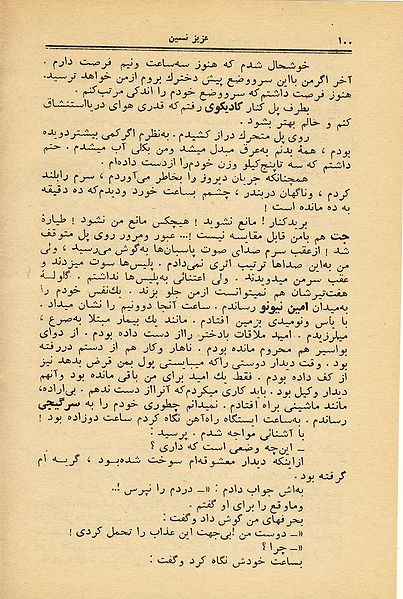 ۱۰۰ عزیز نسین
خوشحال شدم که هنوز سه‌ساعت ونیم فرصت دارم .
آخر اگرمن بااین سرووضع پیش دخترك بروم ازمن خواهد ترسید.
هنوز فرصت داشتم‌که سرووضع خودم را اندکی مرتب‌کنم .
بطرف پل کنار کادیکوی رفتم‌که قدری هوای دریااستنشاق
کنم و حالم بهتر بشود .
روی پل متحرك دراز کشیدم . به‌نظرم اگرکمی بیشتردویده
بودم ، همهٔ بدنم به‌عرق مبدل میشد ومن بکلی آب میشدم . حتم
داشتم که سه تاپنج‌کیلو وزن خودم‌را ازدست داده‌ام .
همچنانکه جریان دیروز را بخاطر می‌آوردم ، سرم رابلند
کردم ، وناگهان دربندر ، چشمم بساعت خورد ودیدم‌که ده دقیقه
به ده مانده است !
بریدکنار ! مانع نشوید ! هیچکس مانع من نشود ! طیارهٔ
جت هم بامن قابل مقاسه نیست !... عبور ومرور روی پل متوقف
شد ! ازعقب سرم صدای صوت پاسبان‌ها به‌گوش می‌رسید ، ولی
من به‌این صداها ترتیب اثری نمی‌دادم . پلیس‌ها سوت میزدند و
عقب سرمن میدویدند . ولی اعتنائی به‌پلیس‌ها نداشتم . گلولهٔ
هفت‌تیرشان هم نمیتوانست ازمن جلو بزند . یك‌نفس خودم را
به‌میدان امین نیونو رساندم . ساعت آنجا دوونیم را نشان میداد .
با یأس ونومیدی بزمین افتادم . مانند یك بیمار مبتلا به‌صرع ،
میلرزیدم . امید ملاقات بادختر رااز دست داده بودم . از دوای
بواسیر هم محروم مانده بودم . ناهار وکار هم از دستم دررفته
بود . وقت دیدار دوستی راکه میبایستی پول بمن قرض بدهد نیز
از کف داده بودم . فقط یك امید برای من باقی مانده بود وآنهم
دیدار وکیل بود . باید کاری میکردم‌که آنرااز دست ندهم . بی‌اراده،
مانند ماشینی براه افتادم . نمیدانم چطوری خودم را به سرگیجی
رساندم . به‌ساعت ایستگاه راه‌آهن نگاه کردم ساعت دوازده بود !
با آشنائی مواجه شدم . پرسید :
ـ این‌چه وضعی است که داری ؟
ازاینکه دیدار معشوقه‌ام سوخت شده‌بود ، گریه ام
گرفته بود .
به‌اش جواب دادم : «ـ دردم را نپرس !..
وماوقع را برای او گفتم .
بحرفهای من گوش داد وگفت :
«ـ دوست من !بی‌جهت این عذاب را تحمل کردی !
«ـ چرا ؟
بساعت خودش نگاه کرد وگفت :